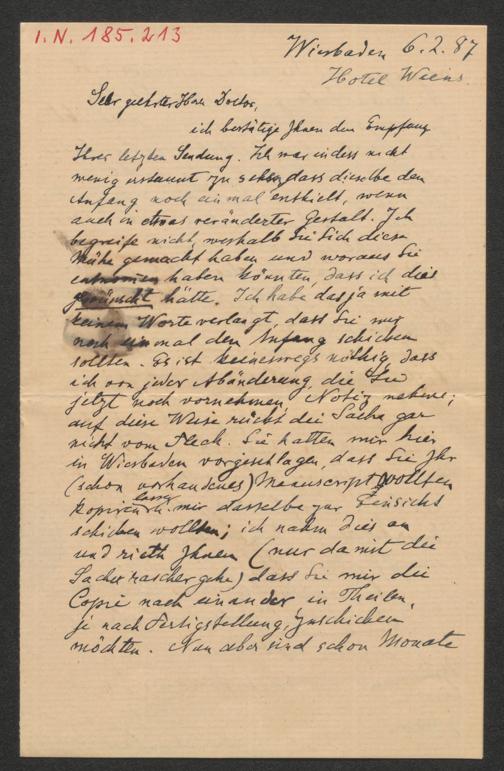 I. N. 185.213
Wiesbaden 6.2.87
Hotel Weins.
Sehr geehrter Herr Doctor,
ich bestätige Ihnen den Empfang
Ihrer letzten Sendung. Ich war indess nicht
wenig erstaunt zu sehen, dass dieselbe den
Anfang noch einmal enthielt, wenn
auch in etwas veränderter Gestalt. Ich
begreife nicht, weshalb Sie Sich diese
Mühe gemacht haben und woraus Sie
entnommen haben könnten, dass ich dies
gewünscht hätte. Ich habe das ja mit
keinem Worte verlangt, dass Sie mir
noch einmal den Anfang schicken
sollten. Es ist keineswegs nöthig, dass
ich von jeder Abänderung, die Sie
jetzt noch vornehmen, Notiz nehme;
auf diese Weise rückt die Sache gar
nicht vom Fleck. Sie hatten mir hier
in Wiesbaden vorgeschlagen, dass Sie Ihr
(schon vorhandenes) Manuscript wollten
kopiren lassen u. mir dasselbe zur Einsicht
schicken wollten; ich nahm dies an
und rieth Ihnen (nur damit die
Sache rascher gehe) dass Sie mir die
Copie nach einander in Theilen,
je nach Fertigstellung, zuschicken
möchten. Nun aber sind schon Monate